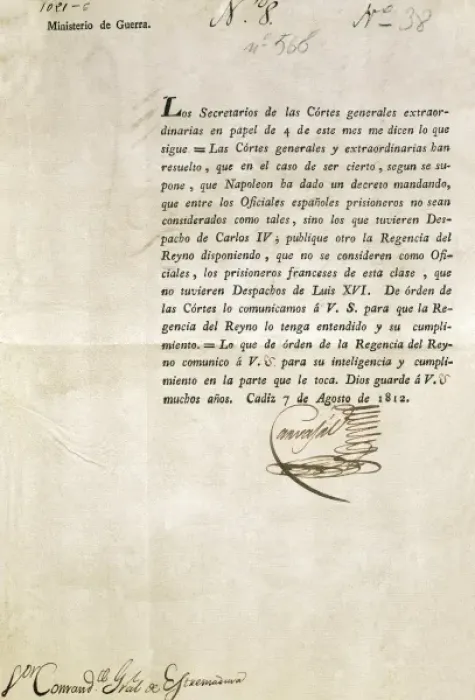 1021-6
Ministerio de Guerra.
N.º 8.
Nº 38
nº 568
Los Secretarios de las Córtes generales extraor-
dinarias en papel de 4 de este mes me dicen lo que
sigue = Las Córtes generales y extraordinarias han
resuelto, que en el caso de ser cierto, segun se su-
pone, que Napoleon ha dado un decreto mandando,
que entre los Oficiales españoles prisioneros no sean
considerados como tales, sino los que tuvieren Des-
pacho de Carlos IV; publique otro la Regencia del
Reyno disponiendo, que no se consideren como Ofi-
ciales, los prisioneros franceses de esta clase, que
no tuvieren Despachos de Luis XVI. De órden de
las Córtes lo comunicamos á V. S. para que la Re-
gencia del Reyno lo tenga entendido y su cumpli-
miento. = Lo que de órden de la Regencia del Rey-
no comunico á V. S. para su inteligencia y cumpli-
miento en la parte que le toca. Dios guarde á V. S.
muchos años. Cadiz 7 de Agosto de 1812.
Carvajal
Sor Comand.te Gral de Estremadura